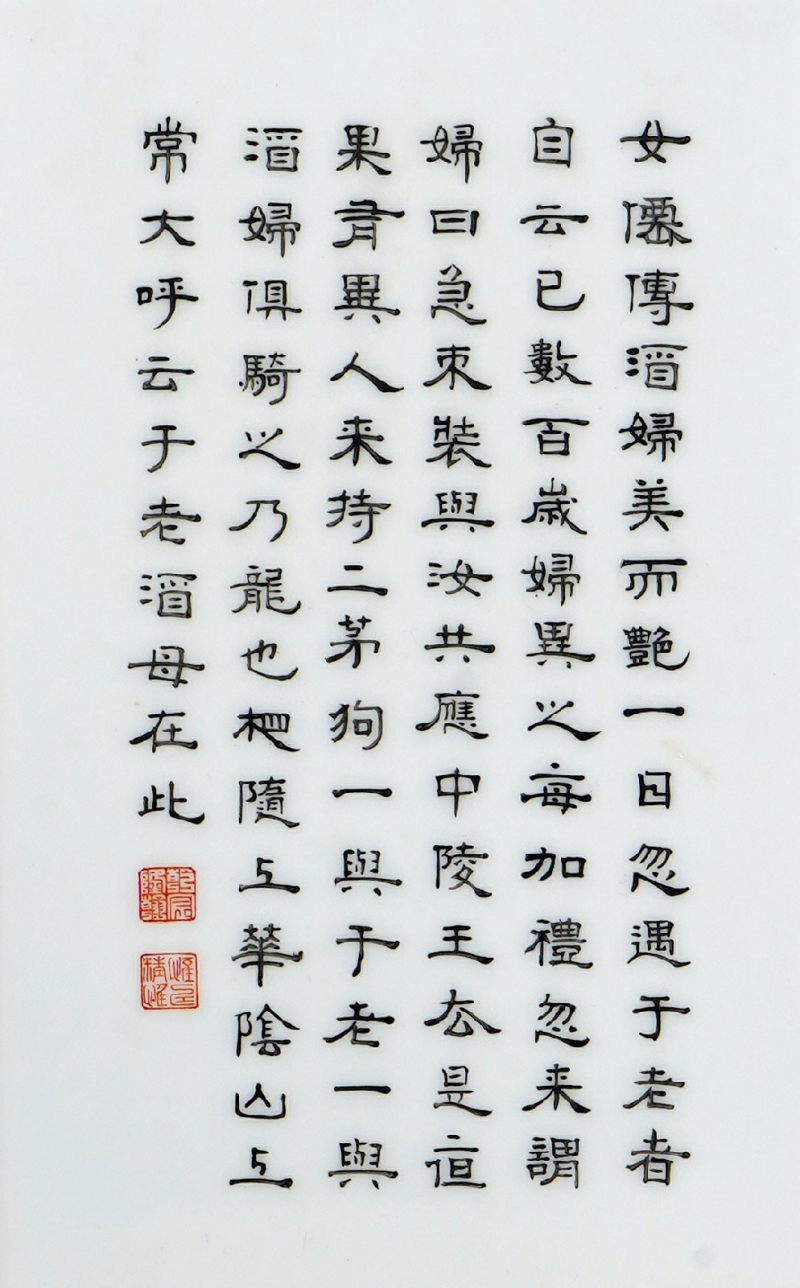 女僊傳酒婦美而艷一日忽遇于老者
自云已數百歲婦異之每加禮忽来謂
婦曰急束裝與汝共應中陵王去是宿
果有異人来持二茅狗一與于老一與
酒婦俱騎之乃龍也相隨上華陰山上
常大呼云于老酒母在此